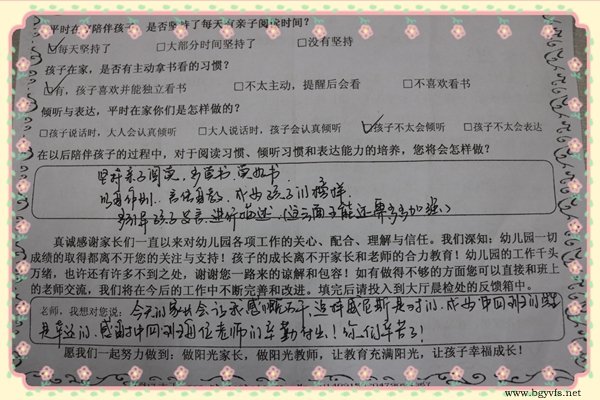 平时在家陪伴孩子，是否坚持了每天有亲子阅读时间？
☑每天坚持了 □大部分时间坚持了 □没有坚持
孩子在家，是否有主动拿书看的习惯？
☑有，孩子喜欢并能独立看书 □不太主动，提醒后会看 □不喜欢看书
倾听与表达，平时在家你们是怎样做的？
□孩子说话时，大人会认真倾听 □大人说话时，孩子会认真倾听 ☑孩子不太会倾听 □孩子不太会表达
在以后陪伴孩子的过程中，对于阅读习惯、倾听习惯和表达能力的培养，您将会怎样做？
坚持亲子阅读，多买书，
以身作则，言传身教，成为孩子的榜样
多引导孩子发言，进行描述，（这方面才能还需多多加强）
真诚感谢家长们一直以来对幼儿园各项工作的关心、配合、理解与信任。我们深知：幼儿园一切
成绩的取得都离不开您的关注与支持！孩子的成长离不开家长和老师的合力教育！幼儿园的工作千头
万绪，也许还有许多不到之处，谢谢您一路来的谅解和包容！如有做得不够的方面您可以直接和班上
的老师交流，我们将在今后的工作中不断完善和改进。填完后请投入到大厅晨检处的反馈箱中。
老师，我想对您说：今天的家长会让我感慨万千，选择威尼斯是对的，成为中四班的
是幸运的，感谢中四班每位老师的辛勤付出！你们辛苦了！
愿我们一起努力做到：做阳光家长，做阳光教师，让教育充满阳光，让孩子幸福成长！
www.bgyvfs.net